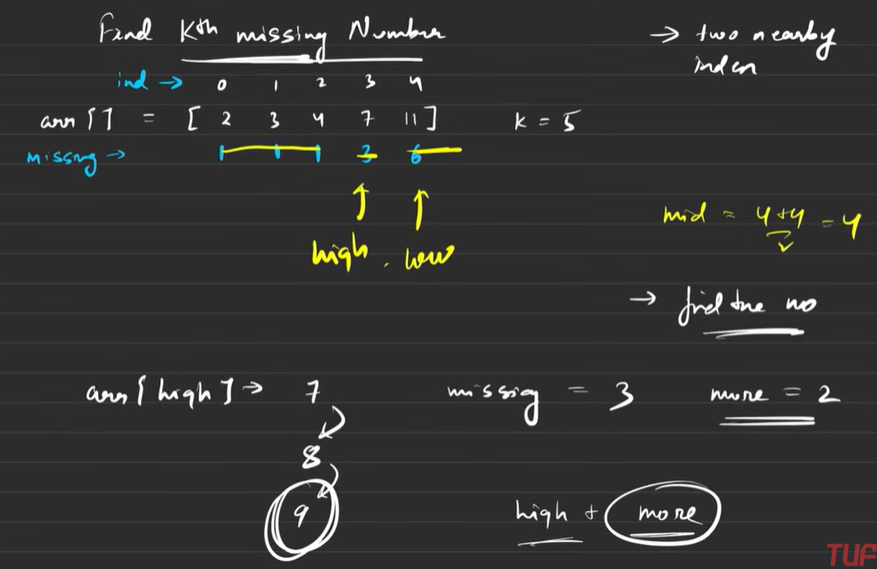 Find Kth missing Number
→ two nearby
index
ind → 0 1 2 3 4
arr [ ] = [ 2 3 4 7 11 ] k = 5
missing → 1 1 1 3 6
high . low
mid = 4+4 = 4
2
→ find the no
arr [ high ] → 7 missig = 3 more = 2
8
9
high + more
TUF